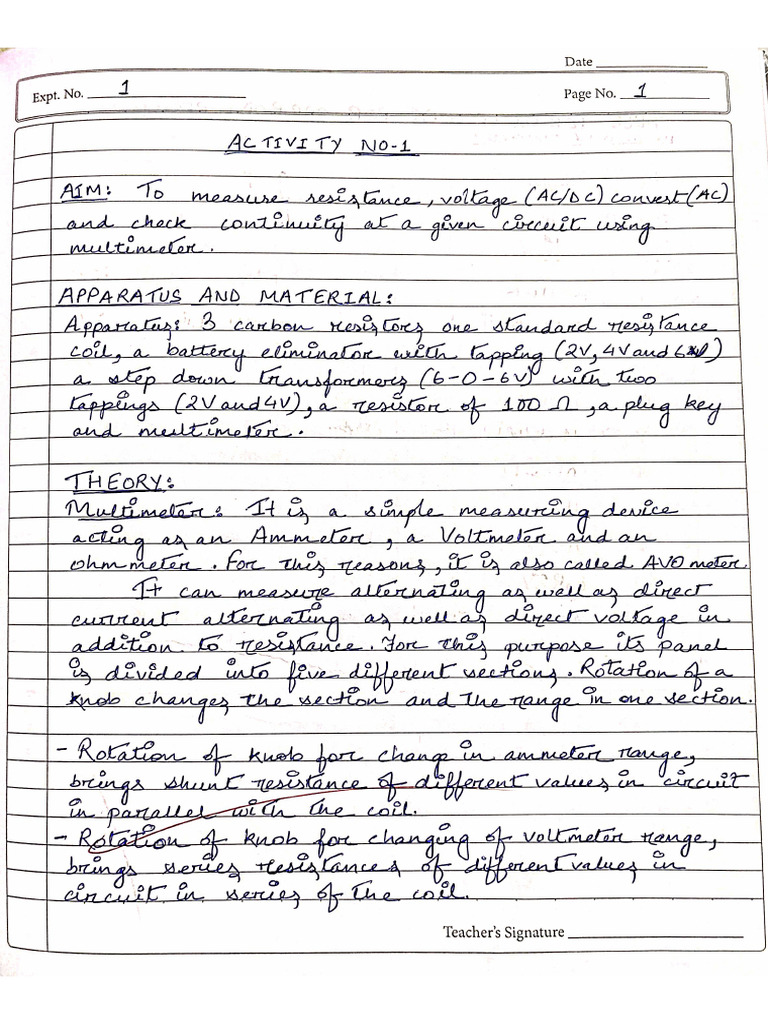 Date
Expt. No. 1
Page No. 1
ACTIVITY NO-1
AIM: To measure resistance, voltage (AC/DC) convert (AC)
and check continuity at a given circuit using
multimeter.
APPARATUS AND MATERIAL:
Apparatus: 3 carbon resistors one standard resistance
coil, a battery eliminator with tapping (2V, 4V and 6V)
a step down transformers (6-0-6V) with two
tappings (2V and 4V), a resistor of 100 Ω, a plug key
and multimeter.
THEORY:
Multimeter: It is a simple measuring device
acting as an Ammeter, a Voltmeter and an
ohmmeter. For this reasons, it is also called AVO meter.
It can measure alternating as well as direct
current alternating as well as direct voltage in
addition to resistance. For this purpose its panel
is divided into five different sections. Rotation of a
knob changes the section and the range in one section.
- Rotation of knob for change in ammeter range,
brings shunt resistance of different values in circuit
in parallel with the coil.
- Rotation of knob for changing of voltmeter range,
brings series resistances of different values in
circuit in series of the coil.
Teacher's Signature